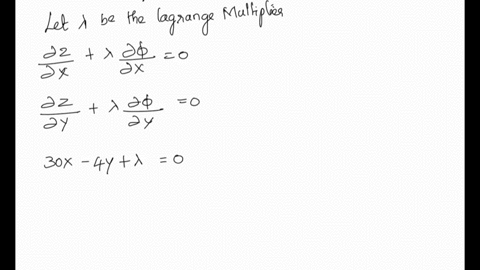 Let λ be the lagrange Multiplier
∂z/∂x + λ ∂ϕ/∂x = 0
∂z/∂y + λ ∂ϕ/∂y = 0
30x - 4y + λ = 0